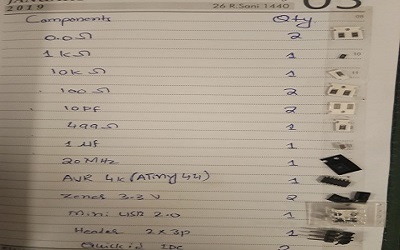 2019
26 R.Sani 1440
03
Components Qty
0.0Ω 2
1kΩ 1
10kΩ 1
100Ω 2
10pf 2
499Ω 1
1 Uf 1
20MHz 1
AVR 4k (ATiny44) 1
Zener 3.3 V 2
Mini USB 2.0 1
Header 2x3p 1
IDC 2